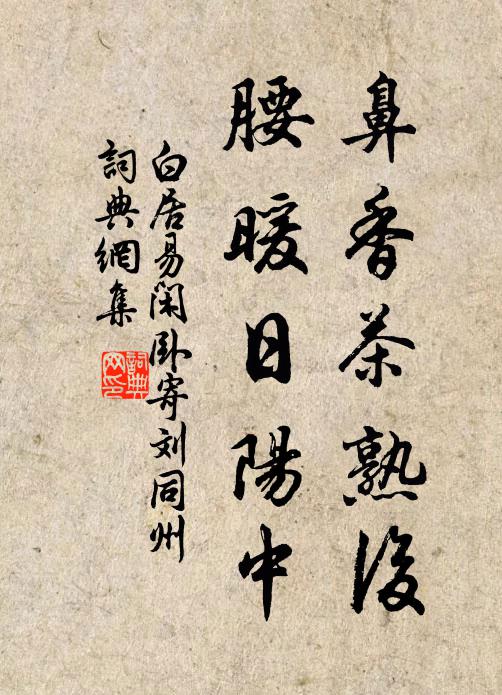 鼻香茶熟後
腰暖日陽中
白居易閑卧寄刘同州
詞典網集
詞典
网印